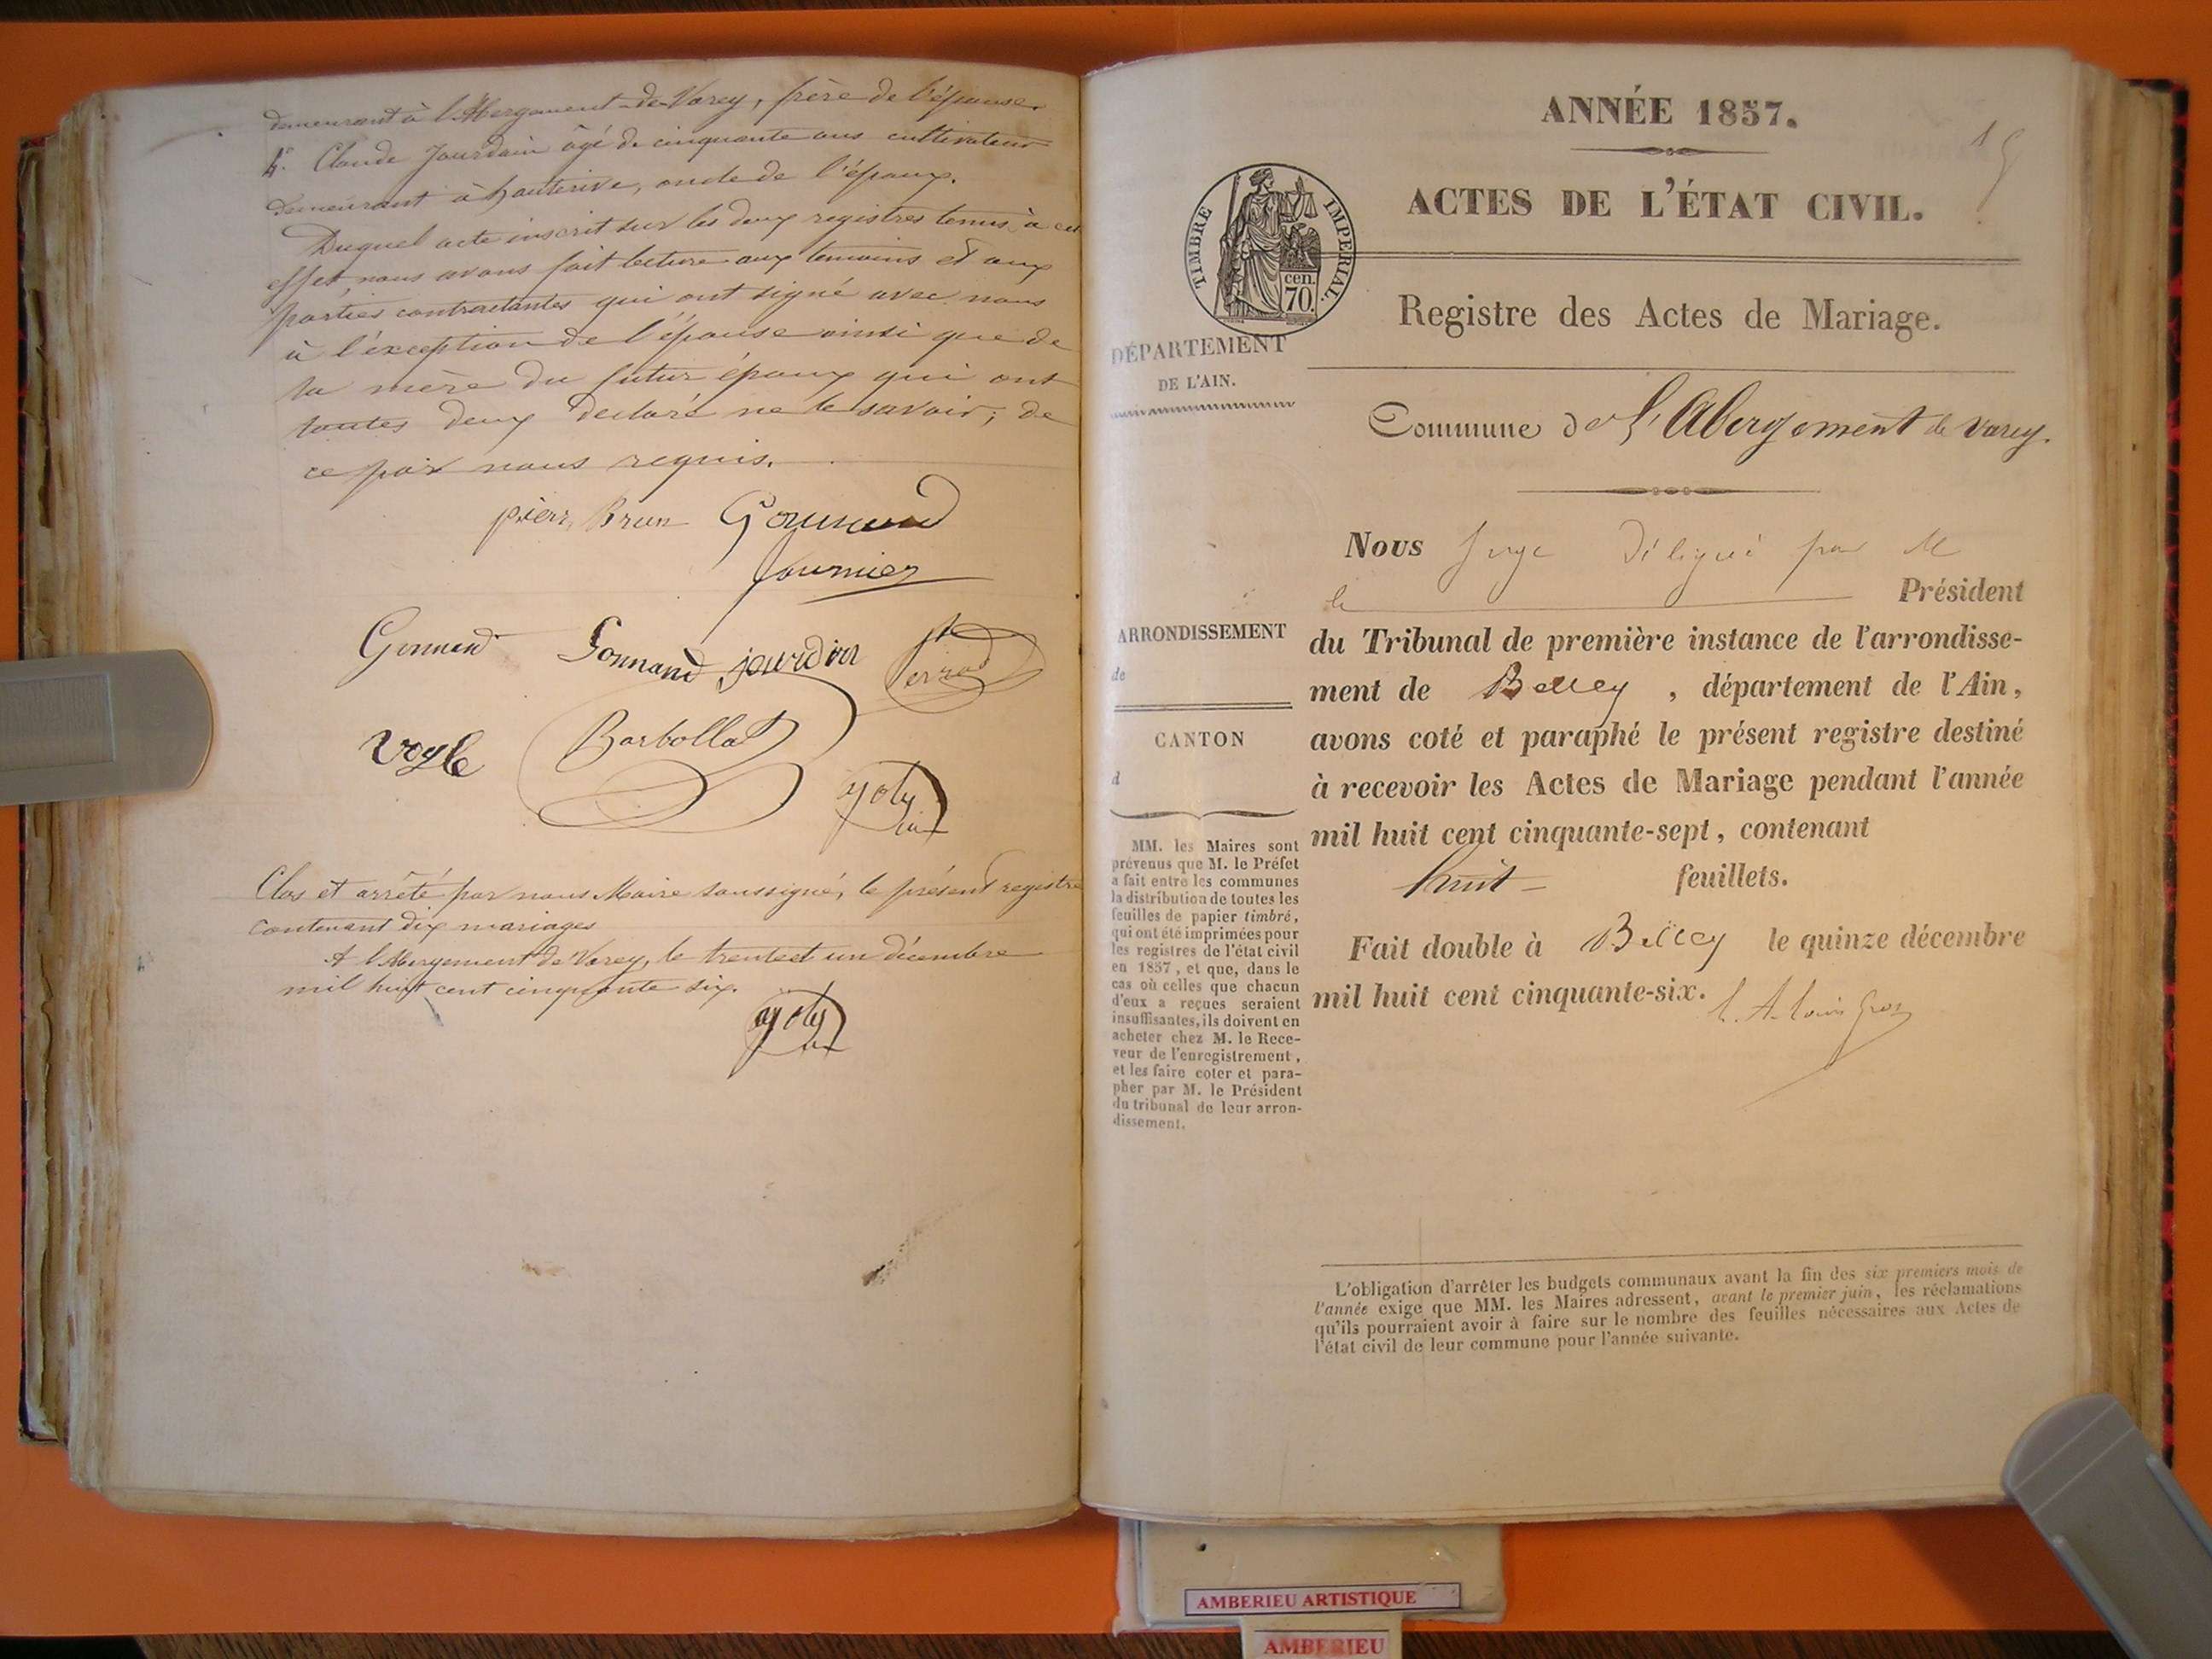 demeurant à l'Abergement-de-Varey, frère de l'épouse.
4°. Claude Jourdain âgé de cinquante ans cultivateur
demeurant à hauterive, oncle de l'époux.
Duquel acte inscrit sur les deux registres tenus à cet
effet, nous avons fait lecture aux temoins et aux
parties contractantes qui ont signé avec nous
à l'exception de l'épouse ainsi que de
la mère du futur époux qui ont
toutes deux declaré ne le savoir; de
ce par nous requis.
pierre Brun Gonnand
fournier
Gonnand Gonnand jourdin
Vogle Barbollat
Joly
Clos et arrêté par nous Maire soussigné, le présent registre
contenant dix mariages
A l'Abergement de Varey, le trente et un décembre
mil huit cent cinquante six.
Joly
ANNÉE 1857.
ACTES DE L'ÉTAT CIVIL.
TIMBRE IMPERIAL.
cen.
70.
Registre des Actes de Mariage.
DÉPARTEMENT
DE L'AIN.
Commune de L'Abergement de Varey.
Nous Juge Délégué par M
le Président
ARRONDISSEMENT
de
CANTON
d
du Tribunal de première instance de l'arrondisse-
ment de Belley, département de l'Ain,
avons coté et paraphé le présent registre destiné
à recevoir les Actes de Mariage pendant l'année
mil huit cent cinquante-sept, contenant
huit feuillets.
Fait double à Belley le quinze décembre
mil huit cent cinquante-six.
MM. les Maires sont
prévenus que M. le Préfet
a fait entre les communes
la distribution de toutes les
feuilles de papier timbré,
qui ont été imprimées pour
les registres de l'état civil
en 1857, et que, dans le
cas où celles que chacun
d'eux a reçues seraient
insuffisantes, ils doivent en
acheter chez M. le Rece-
veur de l'enregistrement,
et les faire coter et para-
pher par M. le Président
du tribunal de leur arron-
dissement.
L'obligation d'arrêter les budgets communaux avant la fin des six premiers mois de
l'année exige que MM. les Maires adressent, avant le premier juin, les réclamations
qu'ils pourraient avoir à faire sur le nombre des feuilles nécessaires aux Actes de
l'état civil de leur commune pour l'année suivante.
AMBERIEU ARTISTIQUE
AMBERIEU